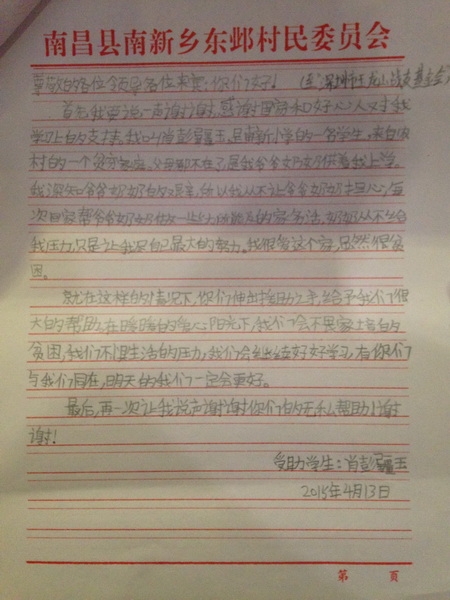 南昌县南新乡东邺村民委员会
尊敬的各位领导各位来宾:你们好!
首先我要说一声谢谢,感谢国家和好心人对我
学习上的支持。我叫肖彭疆玉,是南新小学的一名学生,来自
村的一个贫穷家庭。父母都不在了是我爷爷奶奶供着我上学。
我深知爷爷奶奶的艰辛,所以我从不让爷爷奶奶担心,每
次回家帮爷爷奶奶做一些力所能及的家务活,奶奶从不给
我压力,只是让我尽自己最大的努力。我很爱这个家,虽然很贫
困。
就在这样的情况下,你们伸出援助之手,给予我们很
大的帮助。在暖暖的爱心阳光下,我们会不畏家境的
贫困,我们不惧生活的压力,我们会继续好好学习,有你们
与我们同在,明天的我们一定会更好。
最后,再一次让我说声谢谢你们的无私帮助!谢
谢!
受助学生:肖彭疆玉
2015年4月13日
第 页